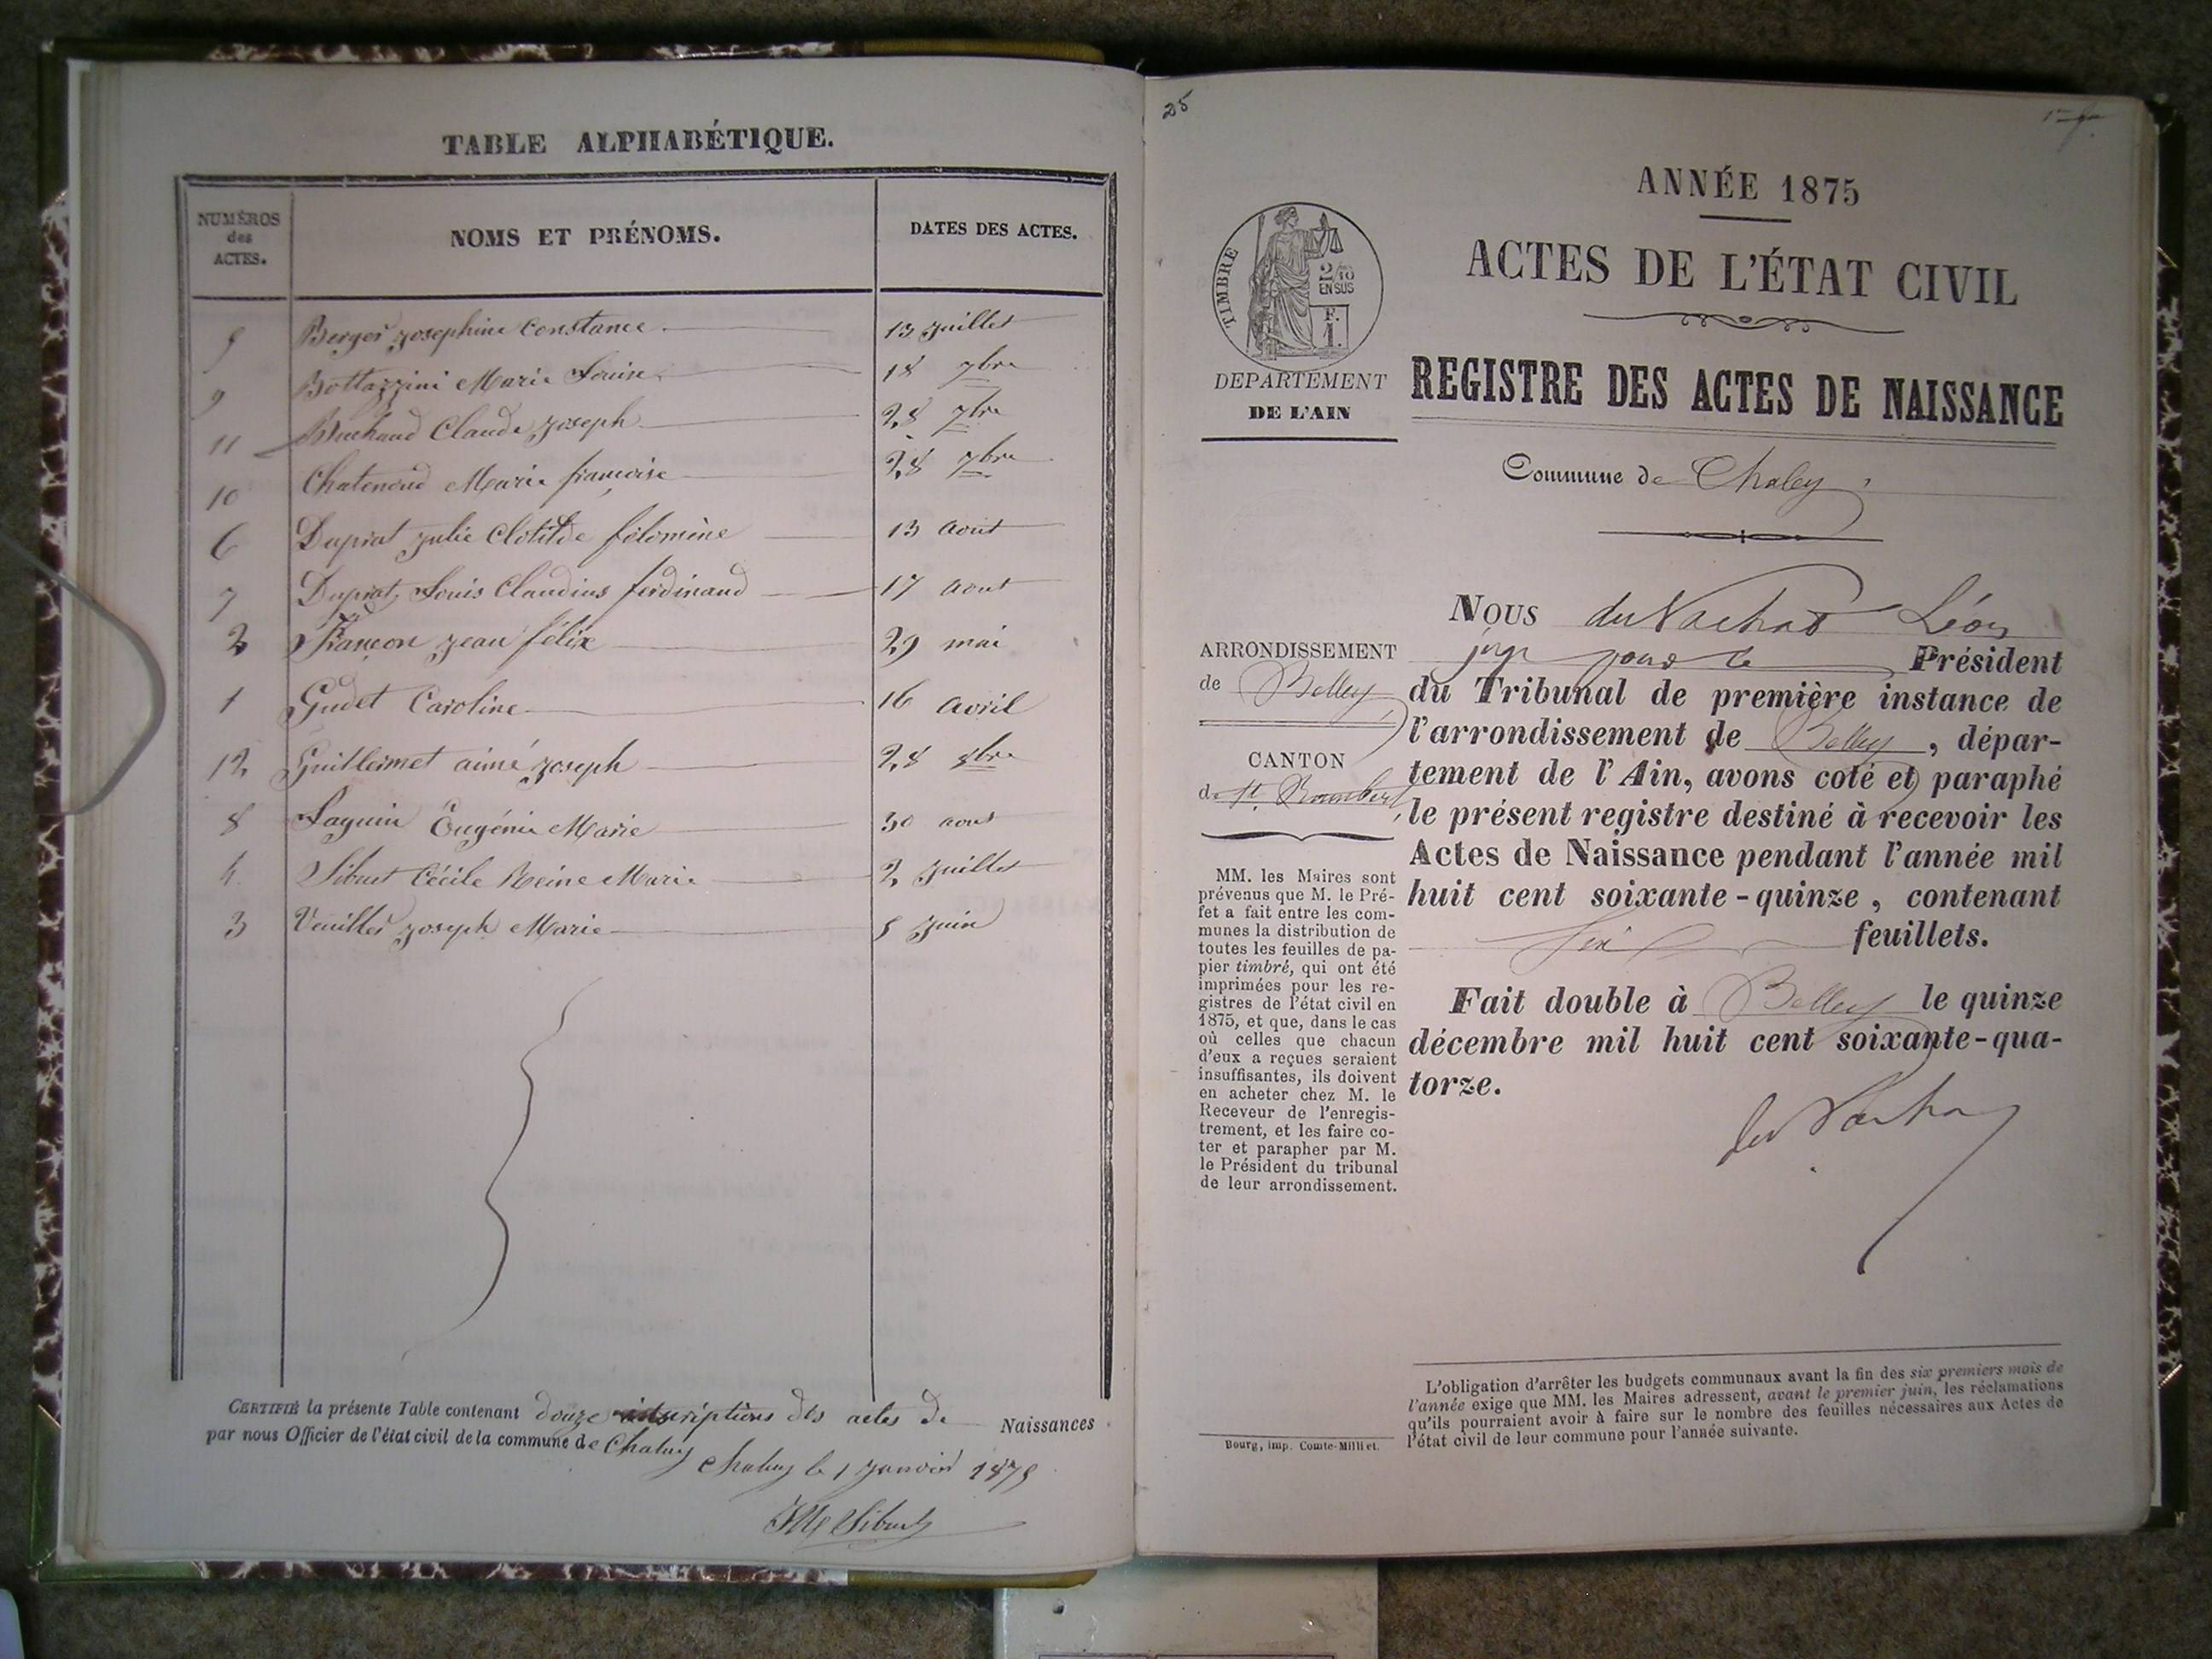 TABLE ALPHABÉTIQUE.
NUMÉROS des ACTES. NOMS ET PRÉNOMS. DATES DES ACTES.
5 Berger Josephine Constance 13 Juillet
9 Bottazzini Marie Louise 18 7bre
11 Claude Joseph 28 7bre
10 Chatenoud Marie françoise 28 7bre
6 Duprat Julie Clotilde félomène 13 Aout
7 Duprat Louis Claudius ferdinand 17 Aout
2 Françon Jean félix 29 mai
1 Gudet Caroline 16 Avril
12 Guillermet aimé Joseph 28 8bre
8 Laguin Eugénie Marie 30 aout
4 Sibuet Cécile Reine Marie 2 Juillet
3 Joseph Marie 5 Juin
CERTIFIÉ la présente Table contenant douze inscriptions des actes de Naissances
par nous Officier de l'état civil de la commune de Chaley
Chaley le 1 Janvier 1875
Sibuet
25
ANNÉE 1875
ACTES DE L'ÉTAT CIVIL
TIMBRE
2/10
EN SUS
F.
1.
DEPARTEMENT
DE L'AIN
REGISTRE DES ACTES DE NAISSANCE
Commune de Chaley
ARRONDISSEMENT
de Belley
CANTON
de St. Rambert
MM. les Maires sont
prévenus que M. le Pré-
fet a fait entre les com-
munes la distribution de
toutes les feuilles de pa-
pier timbré, qui ont été
imprimées pour les re-
gistres de l'état civil en
1875, et que, dans le cas
où celles que chacun
d'eux a reçues seraient
insuffisantes, ils doivent
en acheter chez M. le
Receveur de l'enregis-
trement, et les faire co-
ter et parapher par M.
le Président du tribunal
de leur arrondissement.
Bourg, imp. Comte-Milliet.
Nous du Vachat Léon
juge pour le Président
du Tribunal de première instance de
l'arrondissement de Belley, dépar-
tement de l'Ain, avons coté et paraphé
le présent registre destiné à recevoir les
Actes de Naissance pendant l'année mil
huit cent soixante-quinze, contenant
six feuillets.
Fait double à Belley le quinze
décembre mil huit cent soixante-qua-
torze.
du Vachat
L'obligation d'arrêter les budgets communaux avant la fin des six premiers mois de
l'année exige que MM. les Maires adressent, avant le premier juin, les réclamations
qu'ils pourraient avoir à faire sur le nombre des feuilles nécessaires aux Actes de
l'état civil de leur commune pour l'année suivante.